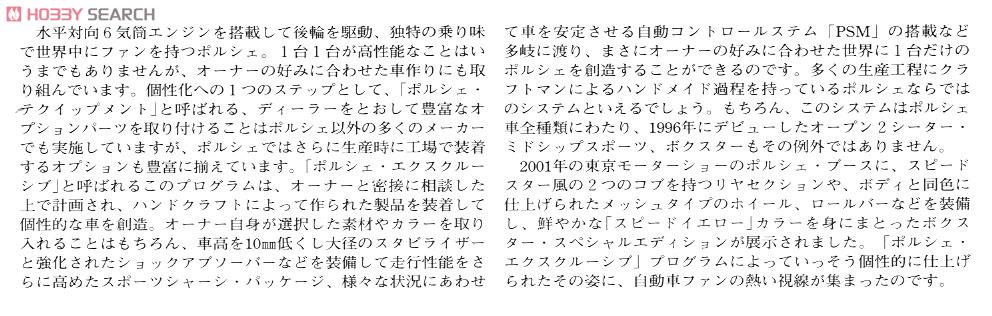 HOBBY SEARCH
水平対向6気筒エンジンを搭載して後輪を駆動、独特の乗り味
で世界中にファンを持つポルシェ。1台1台が高性能なことはい
うまでもありませんが、オーナーの好みに合わせた車作りにも取
り組んでいます。個性化への1つのステップとして、「ポルシェ・
テクイップメント」と呼ばれる、ディーラーをとおして豊富なオ
プションパーツを取り付けることはポルシェ以外の多くのメーカー
でも実施していますが、ポルシェではさらに生産時に工場で装着
するオプションも豊富に揃えています。「ポルシェ・エクスクルー
シブ」と呼ばれるこのプログラムは、オーナーと密接に相談した
上で計画され、ハンドクラフトによって作られた製品を装着して
個性的な車を創造。オーナー自身が選択した素材やカラーを取り
入れることはもちろん、車高を10㎜低くし大径のスタビライザー
と強化されたショックアブソーバーなどを装備して走行性能をさ
らに高めたスポーツシャーシ・パッケージ、様々な状況にあわせ
て車を安定させる自動コントロールステム「PSM」の搭載など
多岐に渡り、まさにオーナーの好みに合わせた世界に1台だけの
ポルシェを創造することができるのです。多くの生産工程にクラ
フトマンによるハンドメイド過程を持っているポルシェならでは
のシステムといえるでしょう。もちろん、このシステムはポルシェ
車全種類にわたり、1996年にデビューしたオープン2シーター・
ミドシップスポーツ、ボクスターもその例外ではありません。
2001年の東京モーターショーのポルシェ・ブースに、スピード
スター風の2つのコブを持つリヤセクションや、ボディと同色に
仕上げられたメッシュタイプのホイール、ロールバーなどを装備
し、鮮やかな「スピードイエロー」カラーを身にまとったボクス
ター・スペシャルエディションが展示されました。「ポルシェ・
エクスクルーシブ」プログラムによっていっそう個性的に仕上げ
られたその姿に、自動車ファンの熱い視線が集まったのです。